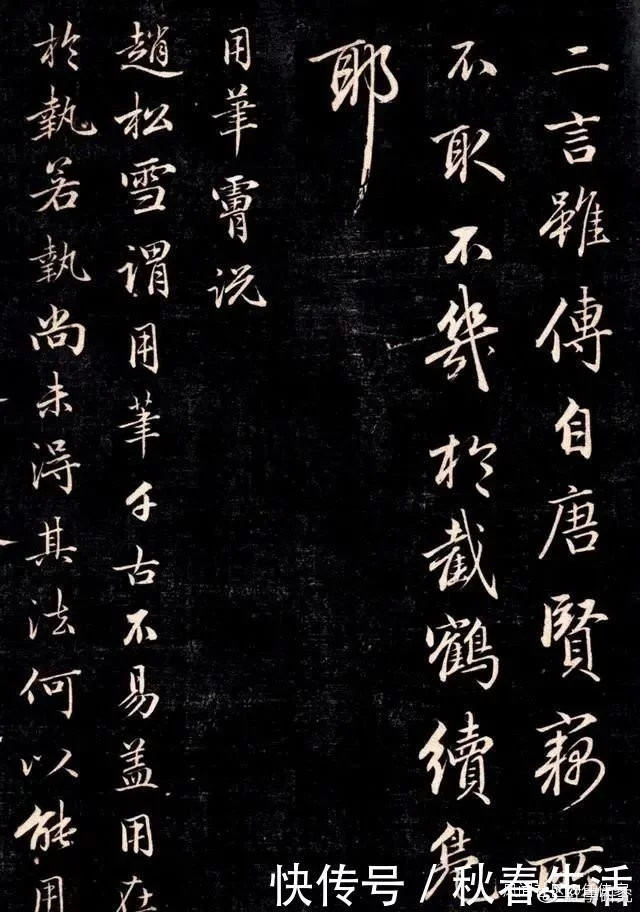 二言雖傳自唐賢竊
不取不幾於截鶴續鳧
耶
用筆說
趙松雪謂用筆千古不易蓋用在
於執若執尚未得其法何以能用
快传号 / 秋春生活